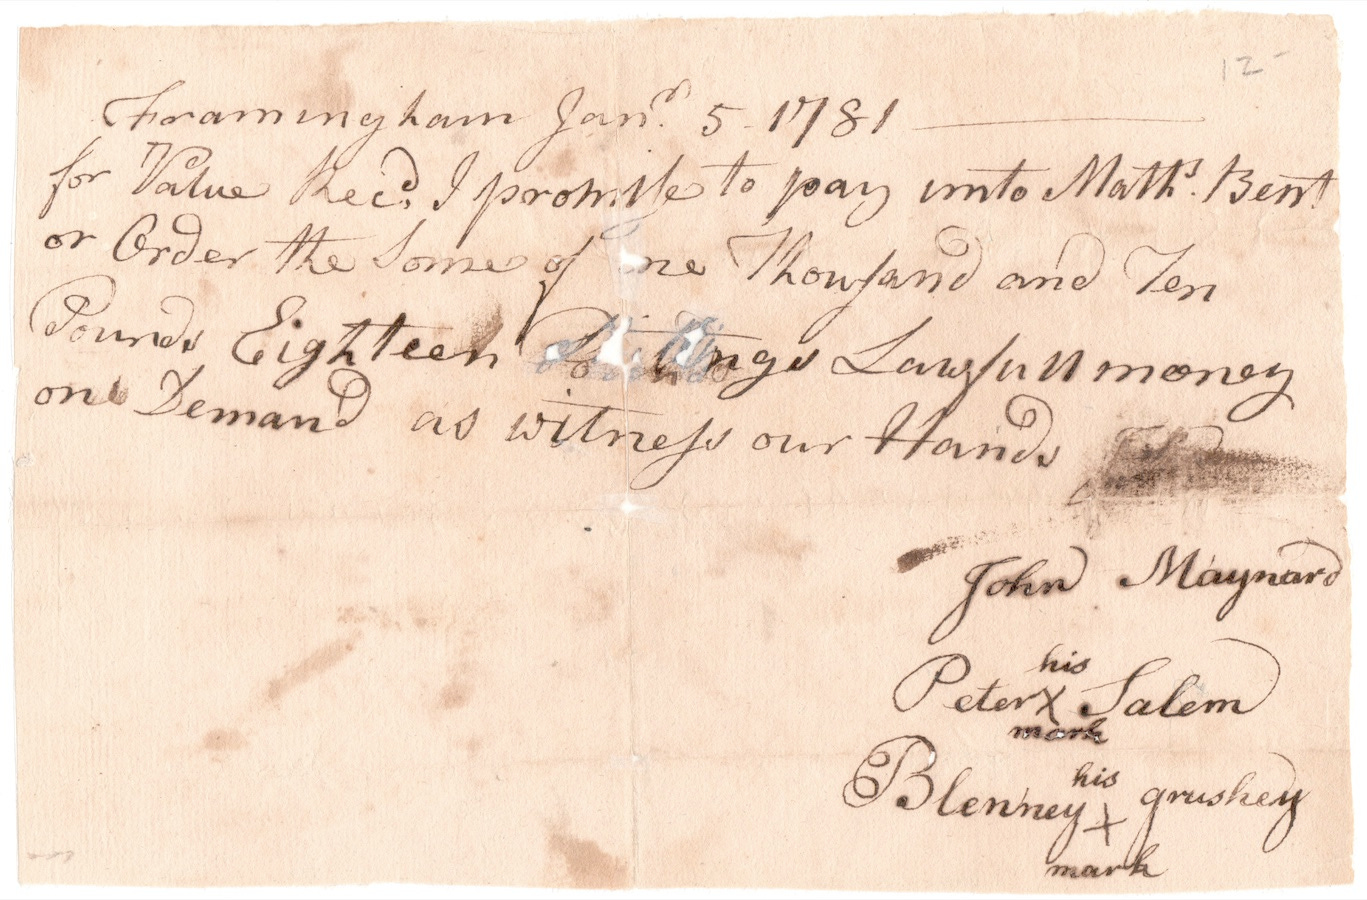 12-
Framingham Janr. 5 - 1781
for Value Recd. I promise to pay unto Maths. Bent
or Order the Some of one Thousand and Ten
Pounds Eighteen Shillings Lawfull money
on Demand as witness our Hands
John Maynard
his
Peter X Salem
mark
his
Blenney X grushey
mark